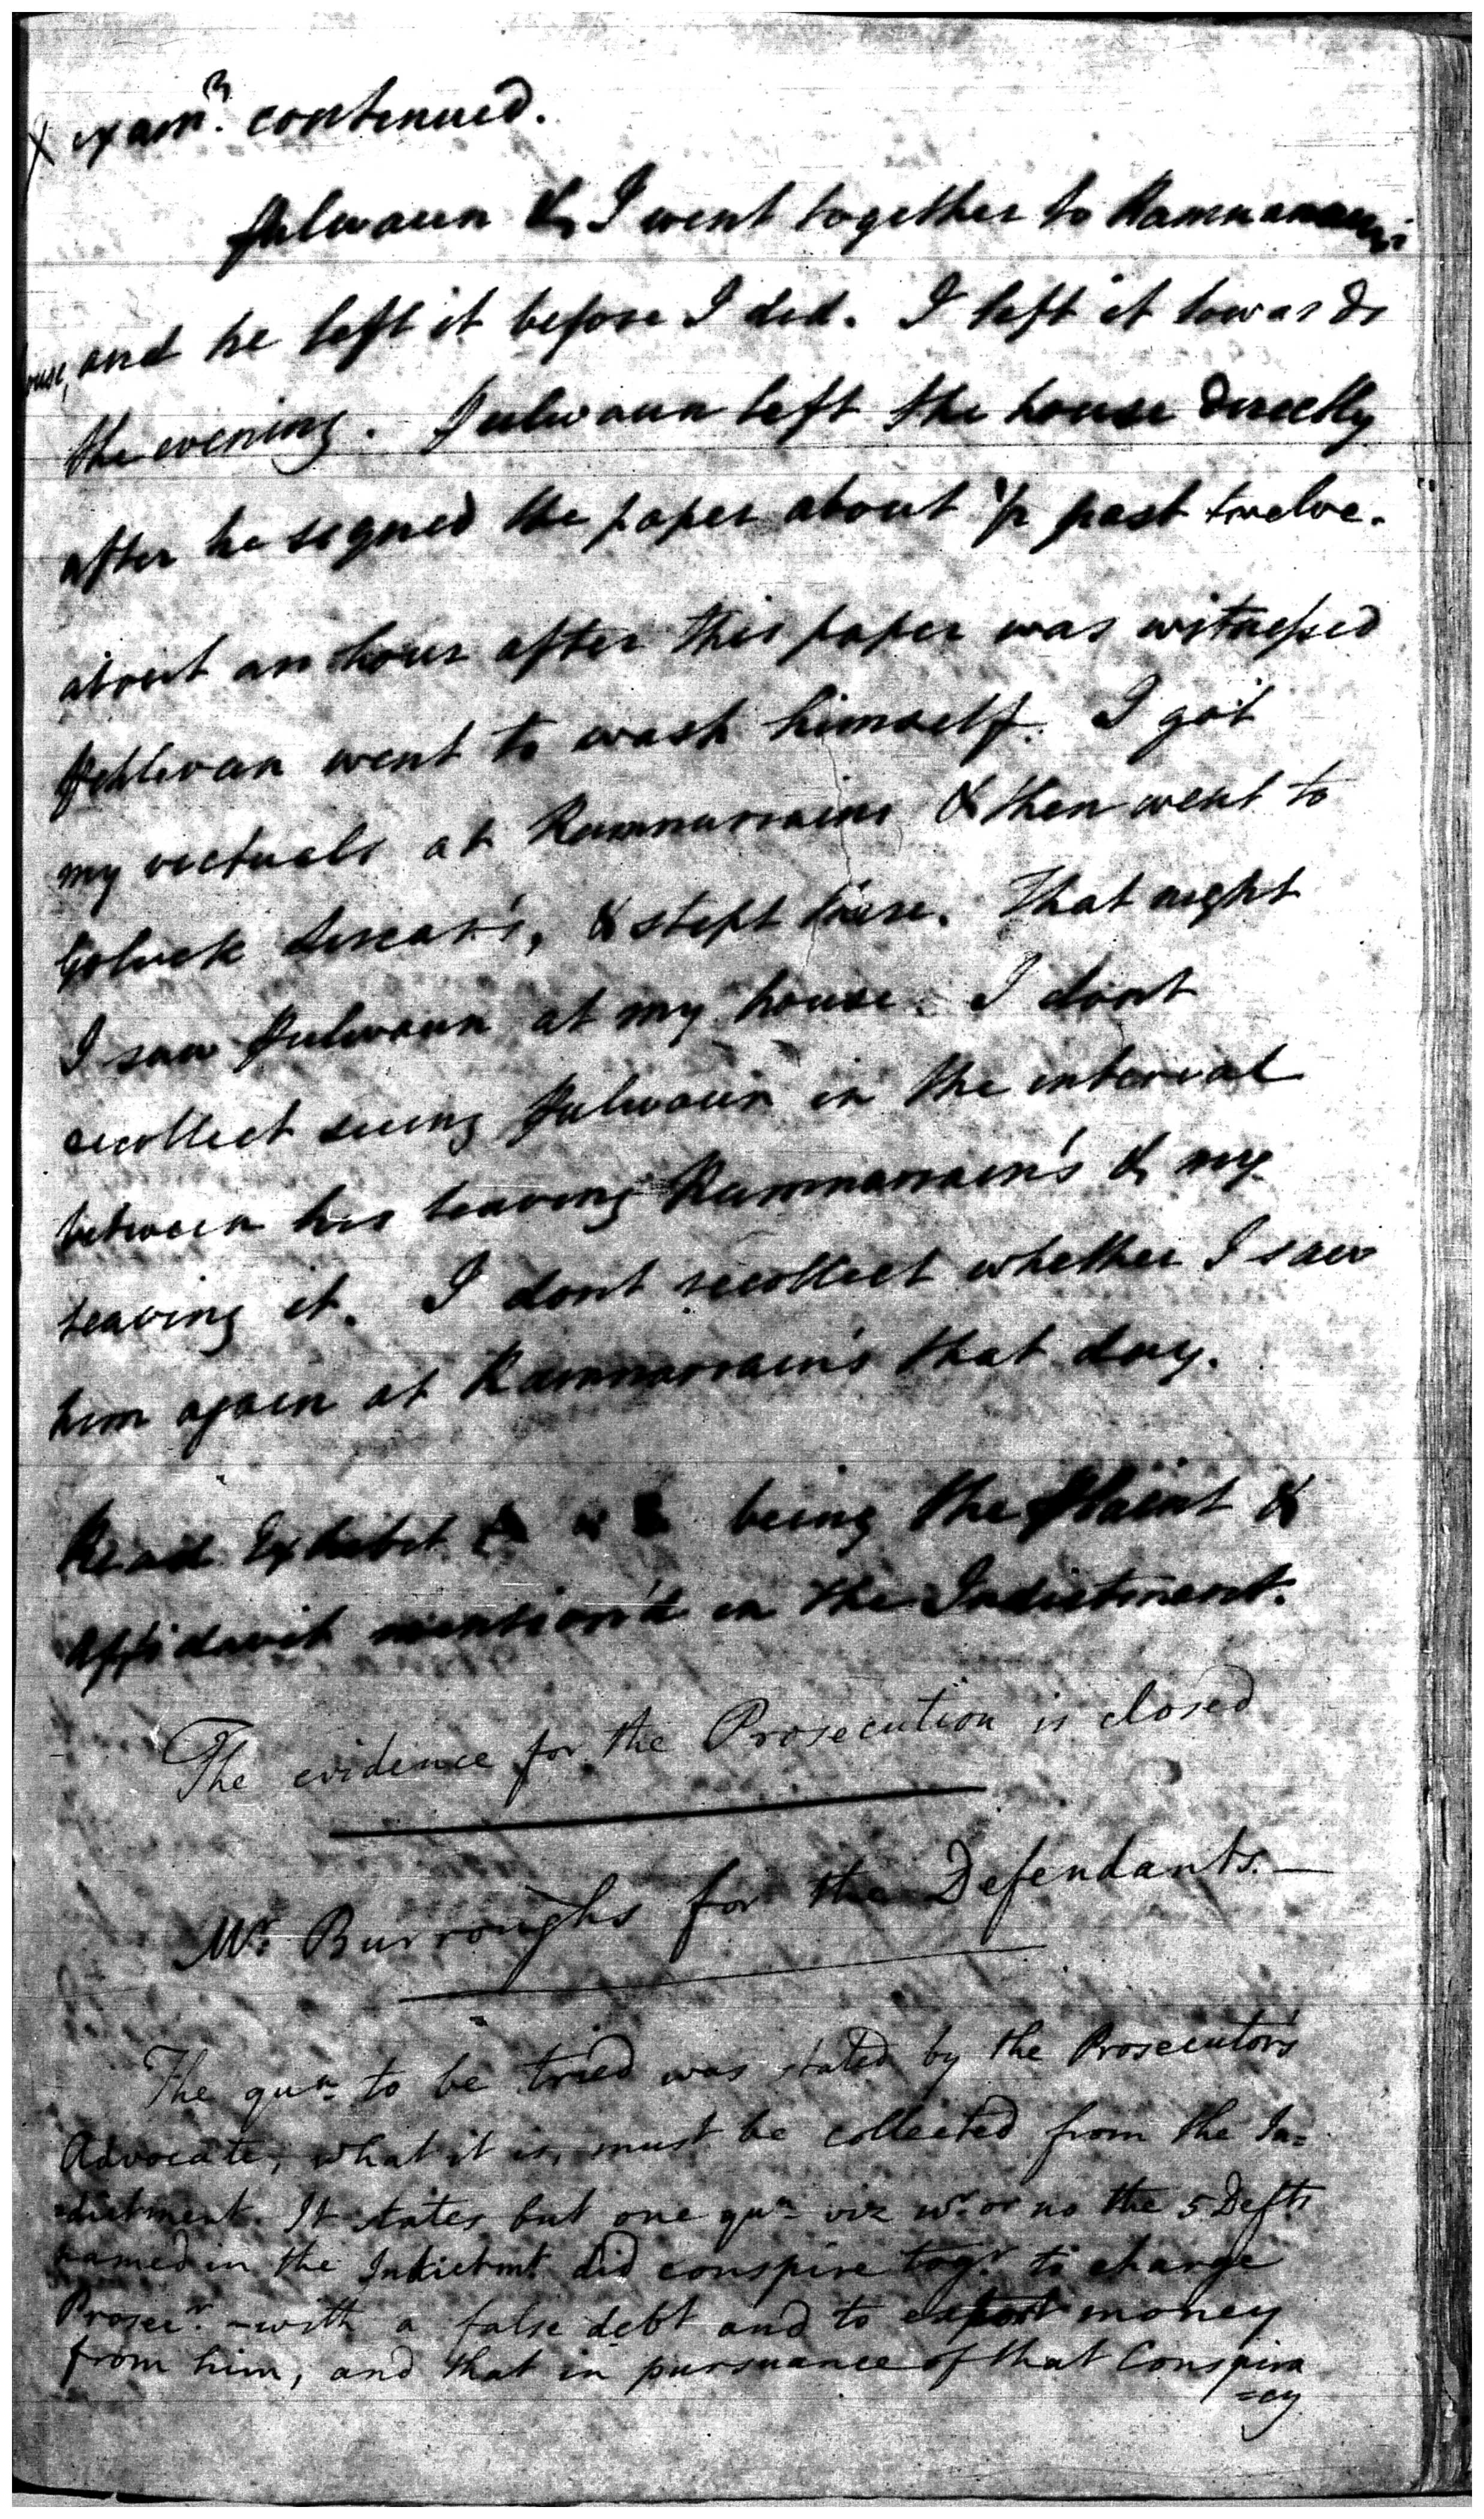 X examn. continued.
Julwaun & I went together to Ramnarain's
house, and he left it before I did. I left it towards
the evening. Julwaun left the house directly
after he signed the paper about 1/2 past twelve.
about an hour after this paper was witnessed
went to wash himself. I got
my victuals at Ramnarrains & then went to
Goluck Sircar's, & slept there. That night
I saw Julwaun at my house. I dont
recollect seeing Julwaun in the interval
between his leaving Ramnarrain's & my
leaving it. I dont recollect whether I saw
him again at Ramnarrain's that day.
Read Exhibit being the Plaint &
Affidavit mention'd in the Indictment.
The evidence for the Prosecution is closed
Mr. Burroughs for the Defendants.—
The qun. to be tried was stated by the Prosecutor's
Advocate, what it is, must be collected from the In=
=dictment. It states but one qun. viz wr. or no the 5 Defts
named in the Indictmt. did conspire togr. to charge
Prosecr. with a false debt and to extort money
from him, and that in pursuance of that Conspira
=cy